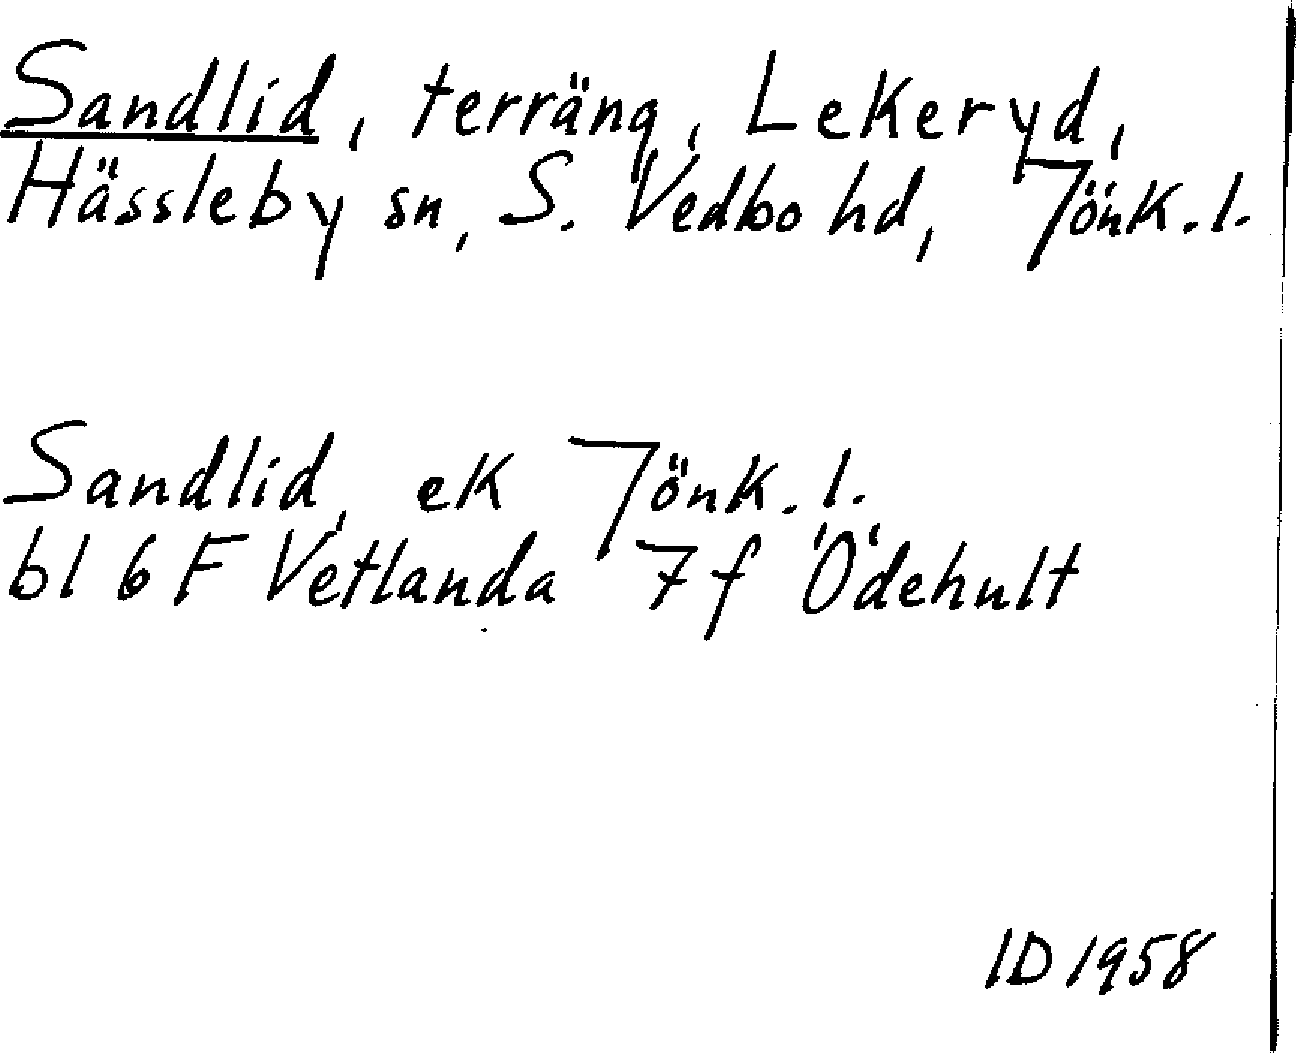 Sandlid, terräng, Lekeryd,
Hässleby sn, S. Vedbo hd, Jönk. l.
Sandlid, ek Jönk. l.
bl 6 F Vetlanda 7 f Ödehult
ID 1958